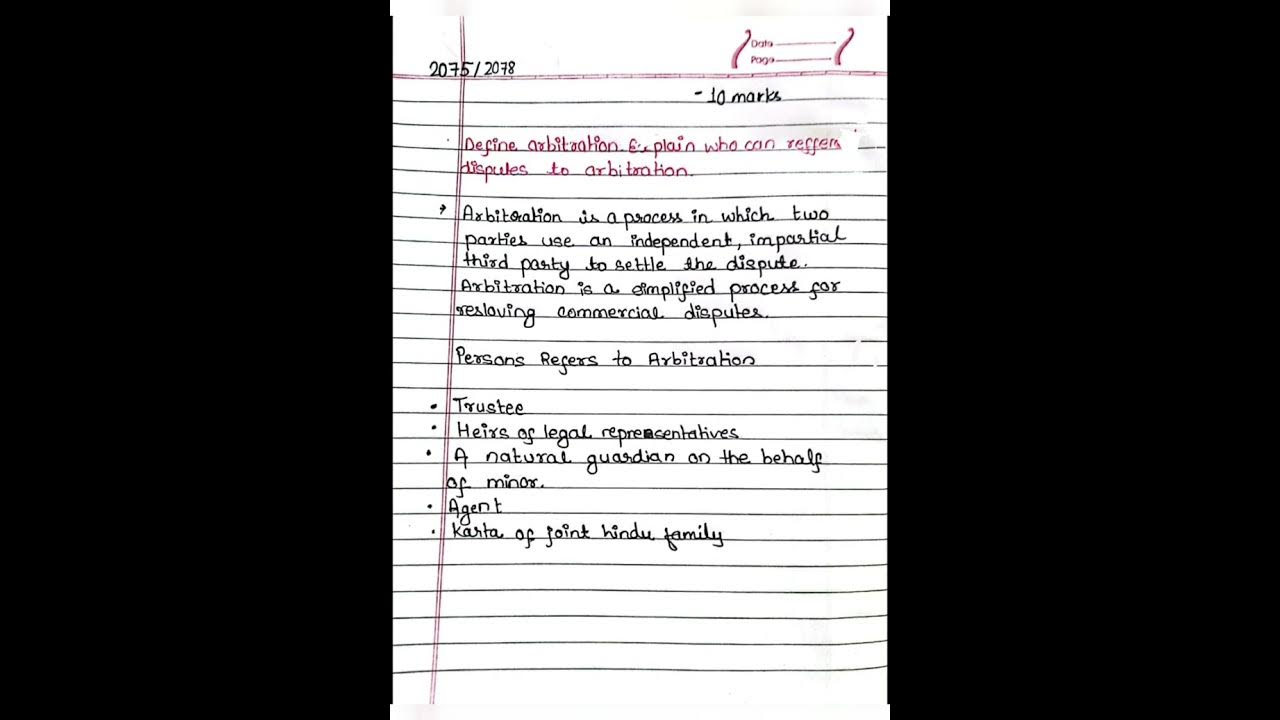 Date
Page
2075/2078
- 10 marks
Define arbitration. Explain who can reffers
disputes to arbitration.
→ Arbitration is a process in which two
parties use an independent, impartial
third party to settle the dispute.
Arbitration is a simplified process for
reslaving commercial disputes.
Persons Refers to Arbitration
• Trustee
• Heirs of legal representatives
• A natural guardian on the behalf
of minor.
• Agent
• Karta of joint hindu family